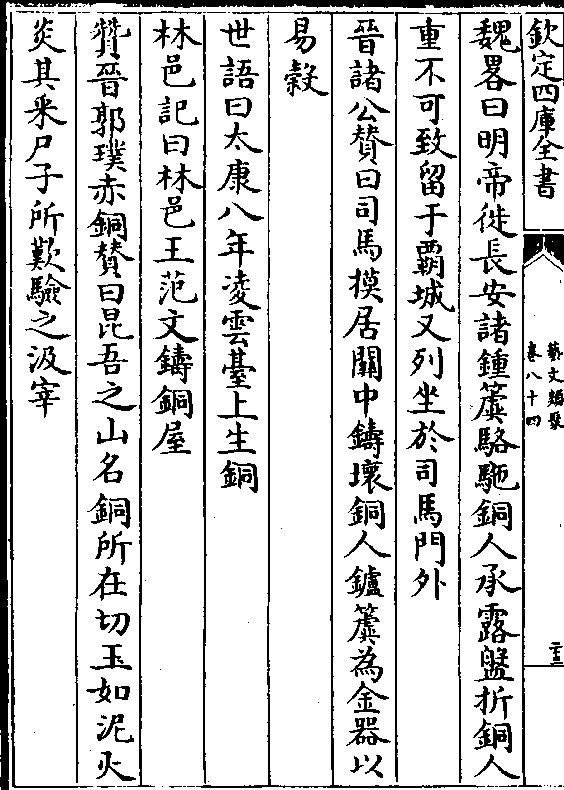 欽定四庫全書
藝文類聚
卷八十四
二十三
魏畧曰明帝徙長安諸鍾簴駱駞銅人承露盤折銅人
重不可致留于覇城又列坐於司馬門外
晉諸公賛曰司馬模居關中鑄壞銅人鑪簴為金器以
易糓
世語曰太康八年凌雲臺上生銅
林邑記曰林邑王范文鑄銅屋
贊晉郭璞赤銅賛曰昆吾之山名銅所在切玉如泥火
炎其采尸子所歎驗之汲宰